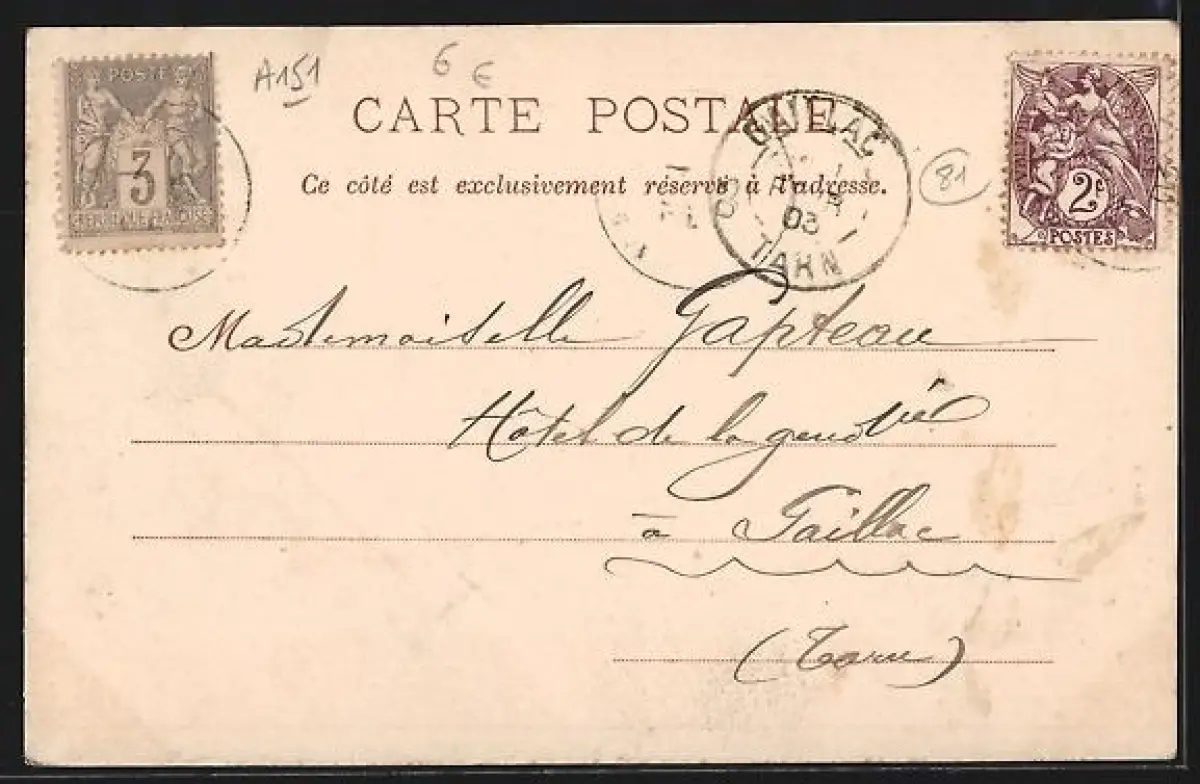 POSTE
3
REPUBLIQUE FRANÇAISE
A151
6 €
CARTE POSTALE
Ce côté est exclusivement réservé à l'adresse.
GAILLAC
03
TARN
81
2c
POSTES
Mademoiselle Gapteau
Hôtel de la
à Gaillac
(Tarn)